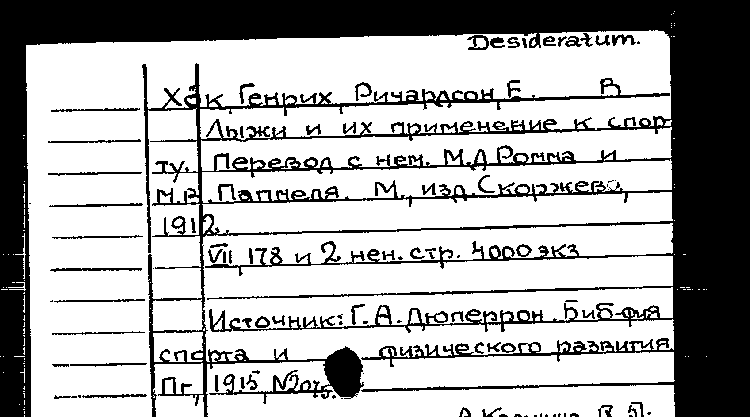 Desideratum.
Хек, Генрих, Ричардсон, Е. В
Лыжи и их применение к спор-
ту. Перевод с нем. М.Д. Ромма и
М.В. Паппеля. М., изд. Скоржево,
1912.
VII, 178 и 2 нен. стр. 4000 экз
Источник: Г. А. Дюперрон. Биб-фия
спорта и физического развития
Пг, 1915, №2015.